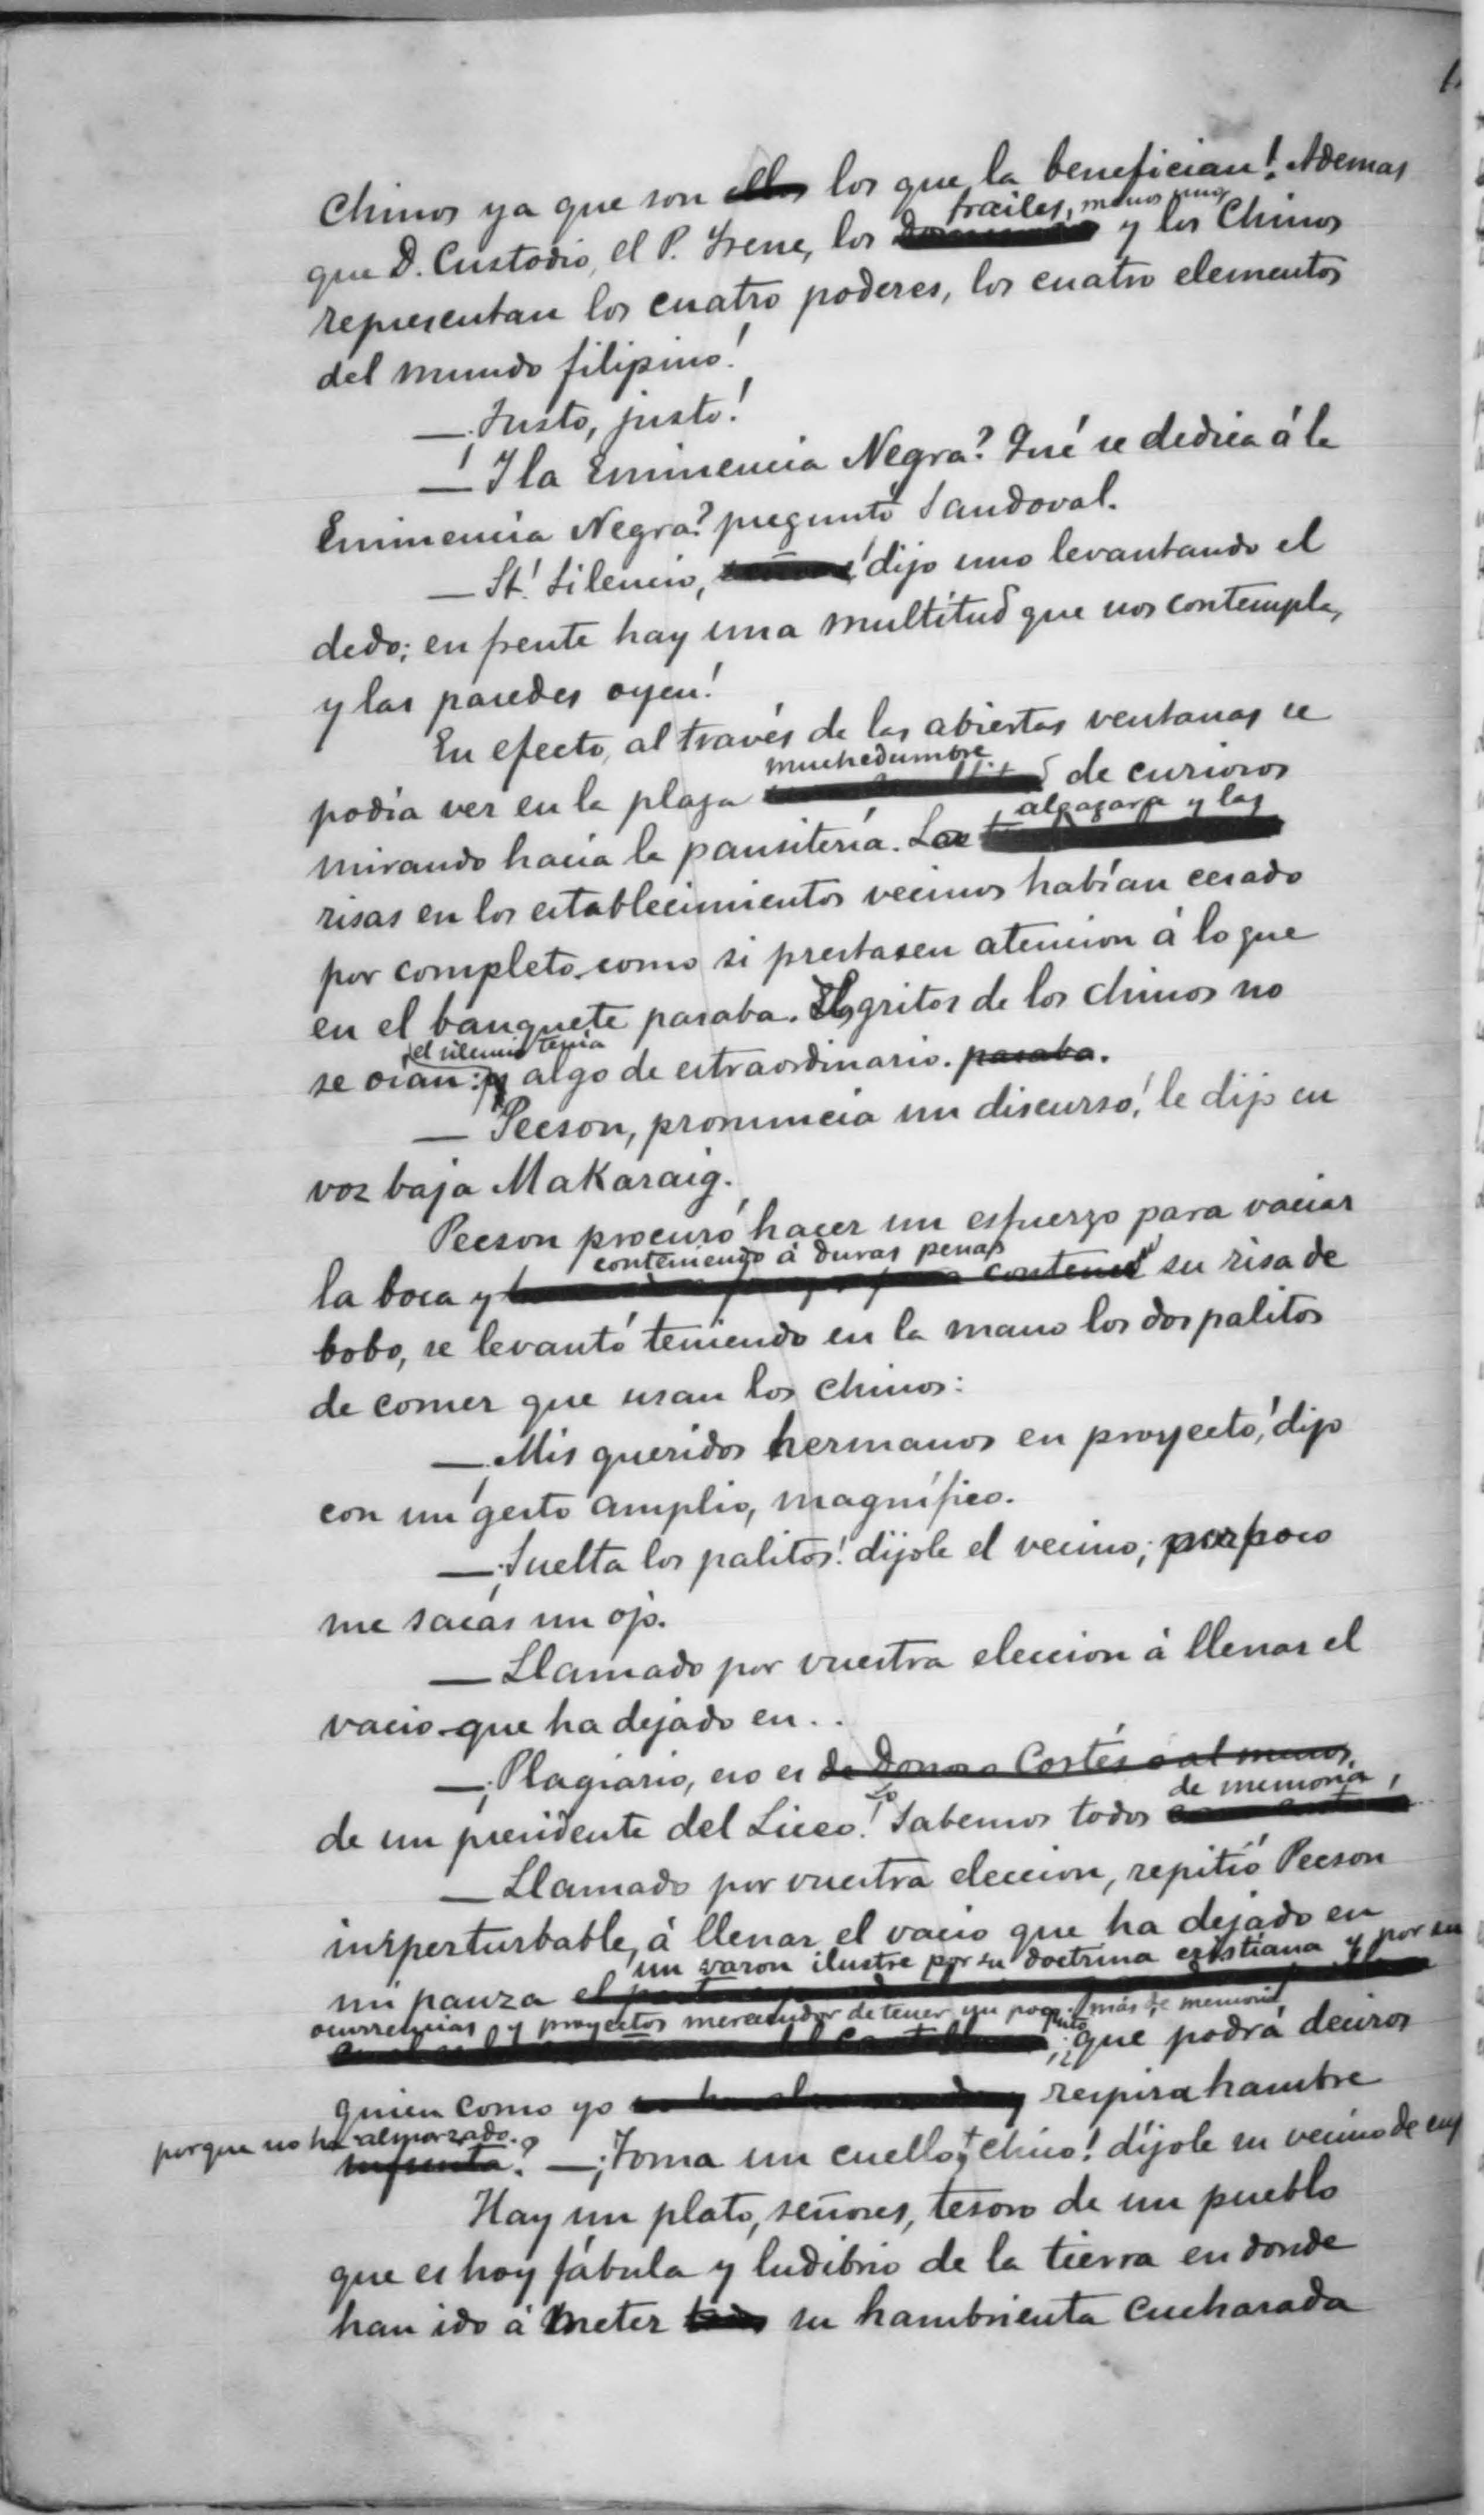 Chinos ya que son ellos los que la benefician! Ademas
frailes, menos uno
que D. Custodio, el P. Irene, los y los Chinos
representan los cuatro poderes, los cuatro elementos
del mundo filipino!
—¡Justo, justo!
—Y la Eminencia Negra? Qué se dedica á la
Eminencia Negra? preguntó Sandoval.
—St! Silencio, señores! dijo uno levantando el
dedo; en frente hay una multitud que nos contempla,
y las paredes oyen!
En efecto, al través de las abiertas ventanas se
muchedumbre
podia ver en la plaza de curiosos
algazara y las
mirando hacia la pansitería. La
risas en los establecimientos vecinos habían cesado
por completo como si prestasen atencion á lo que
en el banquete pasaba. Los gritos de los chinos no
el silencio tenía
se oian: y algo de estraordinario. pasaba.
— Pecson, pronuncia un discurso! le dijo en
voz baja Makaraig.
Pecson procuró hacer un esfuerzo para vaciar
conteniendo á duras penas
la boca y contener su risa de
bobo, se levantó teniendo en la mano los dos palitos
de comer que usan los chinos:
—¡Mis queridos hermanos en proyecto! dijo
con un gesto amplio, magnífico.
—¡Suelta los palitos! díjole el vecino; por poco
me sacas un ojo.
—Llamado por vuestra eleccion á llenar el
vacio que ha dejado en . .
—¡Plagiario, eso es de Donoso Cortés ó al menos
Lo de memoria
de un presidente del Liceo! Sabemos todos
—Llamado por vuestra eleccion, repitió Pecson
imperturbable, á llenar el vacio que ha dejado en
un varon ilustre por su doctrina cristiana y por su
mi panza el
ocurrencias y proyectos merecedor de tener un poquito más de memoria
¿que podrá deciros
quien como yo respira hambre
porque no ha almorzado?
—¡Toma un cuello, chico! díjole su vecino de
Hay un plato, señores, tesoro de un pueblo
que es hoy fábula y ludibrio de la tierra en donde
han ido á meter todos su hambrienta cucharada